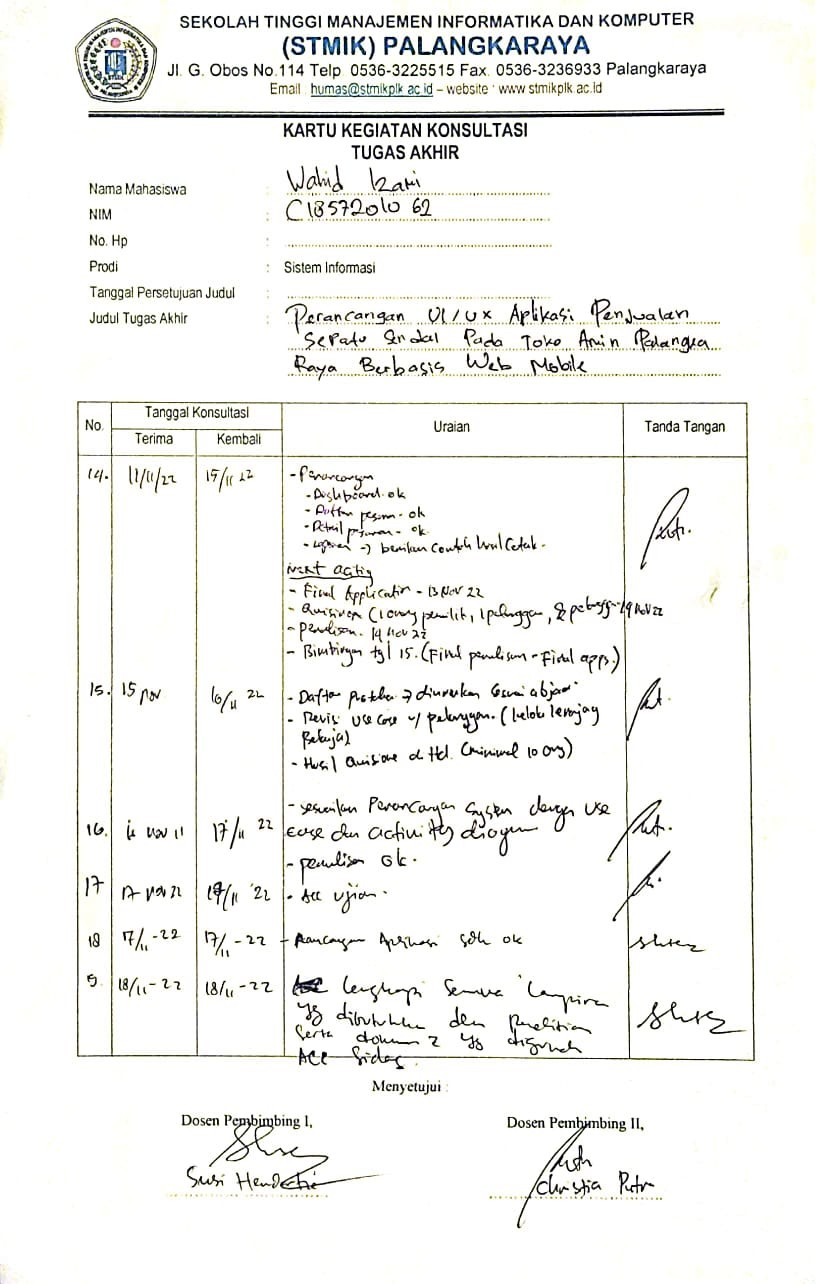 SEKOLAH TINGGI MANAJEMEN INFORMATIKA DAN KOMPUTER
(STMIK) PALANGKARAYA
Jl. G. Obos No.114 Telp. 0536-3225515 Fax. 0536-3236933 Palangkaraya
Email : humas@stmikplk.ac.id – website : www.stmikplk.ac.id
KARTU KEGIATAN KONSULTASI
TUGAS AKHIR
Nama Mahasiswa : Wahid
NIM : C1857201062
No. Hp :
Prodi : Sistem Informasi
Tanggal Persetujuan Judul :
Judul Tugas Akhir : Perancangan UI/UX Aplikasi Penjualan
Sepatu Sendal Pada Toko Amin Palangka
Raya Berbasis Web Mobile
No. Tanggal Konsultasi Uraian Tanda Tangan
Terima Kembali
14. 11/11/22 15/11 22 - Perancangan
- Dashboard ok
- Daftar pesanan - ok
- Detail pesanan - ok
- Laporan -> berikan contoh hasil cetak.
Next
- Final Application - 13 Nov 22
- 19 Nov 22
- Penulisan. 14 Nov 22
- Bimbingan tgl 15. (Final penulisan - Final apps.)
15. 15 Nov 16/11 22 - Daftar pustaka -> diurutkan sesuai abjad
- Revisi use case
- Hasil (minimal 10 org)
- Sesuaikan Perancangan System dengan use
16. 17/11 22 case dan activity diagram
- penulisan ok.
17 17 Nov 22 19/11 '22 - Acc ujian.
18 17/11-22 17/11-22 - Rancangan Aplikasi sdh ok
18/11-22 18/11-22 lengkapi Semua Lampiran
yg dibutuhkan dlm Penelitian
Serta yg
ACC Sidang
Menyetujui :
Dosen Pembimbing I, Dosen Pembimbing II,
Susi Christia Putri